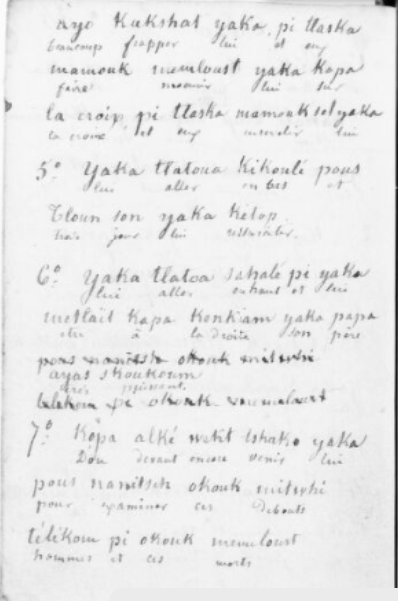 ayo Kukshat yaka, pi tlaska
beaucoup frapper lui et eux
mamouk memloust yaka kopa
faire mourir lui sur
la croix pi tlaska mamouk sol yaka
la croix et eux ensevelir lui
5° Yaka tlatoua Kikoulé pous
lui aller en bas et
tloun son yaka ketop.
trois jour lui ressusciter.
6° Yaka tlatoa sahalé pi yaka
lui aller enhaut et lui
metlaït kapa kenkiam yaka papa
etre à la droite son père
pous nanitsh okouk mitwhi
ayas skoukoum
très puissant.
telekom pi okouk memeloust
7° Kopa alké wekt tshako yaka
D'ou devant encore venir lui
pous nanitsch okouk mitwhi
pour examiner ces debouts
télékom pi okouk memeloust
hommes et ces morts